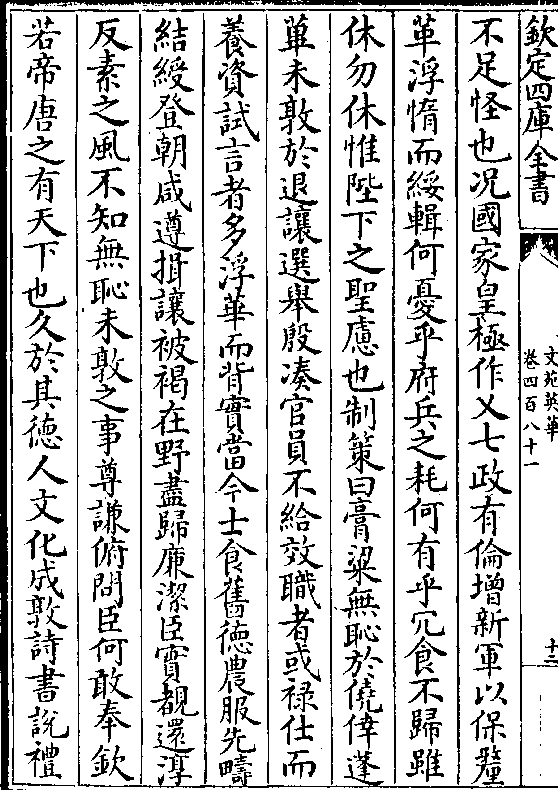 欽定四庫全書
文苑英華
卷四百八十一
十二
不足怪也况國家皇極作乂七政有倫增新軍以保釐
革浮惰而綏輯何憂乎府兵之耗何有乎冗食不歸雖
休勿休惟陛下之聖慮也制策曰膏粱無恥於僥倖蓬
蓽未敦於退讓選舉殷湊官員不給效職者或禄仕而
養資試言者多浮華而背實當今士食舊徳農服先疇
結綬登朝咸遵揖讓被褐在野盡歸廉潔臣實覩還淳
反素之風不知無恥未敦之事尊謙俯問臣何敢奉欽
若帝唐之有天下也久於其徳人文化成敦詩書説禮